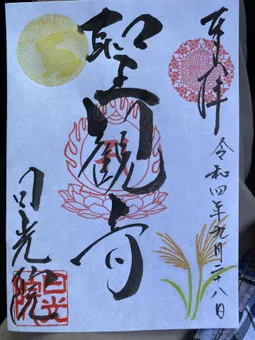 奉拝
令和四年九月二十八日
聖観音
日光院